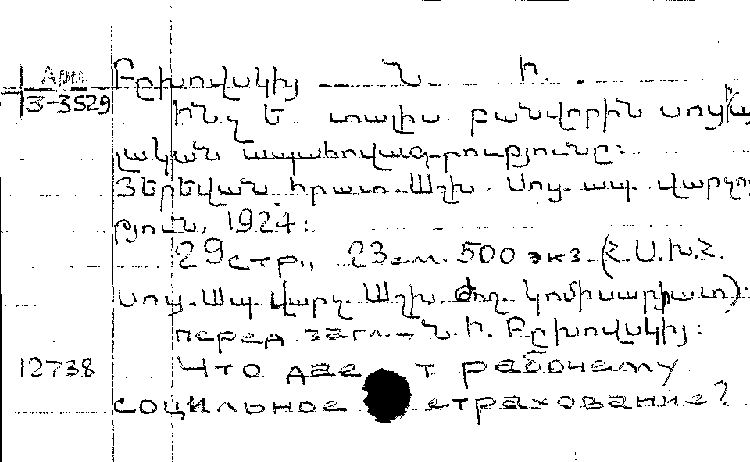 Арм Բըխովսկիյ Ն. Ի.
3-3529 Ինչ է տալիս բանվորին սոցիա
լական ապահովագրությունը:
Յերեվան. հրատ. Աշխ. Սոց. ապ. վարչու
թյուն, 1924:
29 стр., 23 см. 500 экз. (Հ.Ս.Խ.Հ.
Սոց. Ապ. վարչ. Աշխ. Ժող. կոմիսարիատ):
перед загл. Ն. Ի. Բըխովսկիյ:
12738 Что дает рабочему
социльное страхование?